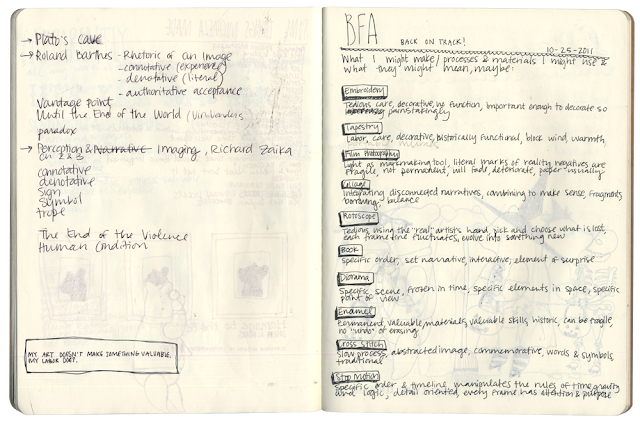 → Plato's cave
→ Roland Barthes - Rhetoric of an Image
- connotative (experience)
- denotative (literal)
- authoritative acceptance
Vantage point
Until the End of the World (Wim Wenders)
paradox
→ Perception & Narrative Imaging, Richard Zakia
Ch 2 & 3
connotative
denotative
sign
symbol
trope
The End of the Violence
Human Condition
MY ART DOESN'T MAKE SOMETHING VALUABLE,
MY LABOR DOES.
BFA
BACK ON TRACK!
10-25-2011
What I might make/processes & materials I might use &
what they might mean, maybe:
Embroidery
Tedious care, decorative, no function, important enough to decorate so
painstakingly
Tapestry
Labor, care, decorative, historically functional, block wind, warmth
Film Photography
Light as markmaking tool, literal marks of reality negatives are
fragile, not permanent, will fade, deteriorate, paper usually
Collage
Integrating disconnected narratives, combining to make sense, fragments
borrowing, balance
Rotoscope
Tedious using the "real" artists hand, pick and choose what is lost,
each frame line fluctuates, evolve into something new
Book
Specific order, set narrative, interactive, element of surprise
Diorama
Specific scene, frozen in time, specific elements in space, specific
point of view
Enamel
Permanent, valuable materials, valuable skills, historic, can be fragile,
no "undo" or erasing
Cross Stitch
Slow process, abstracted image, commemorative, words & symbols,
traditional
Stop Motion
Specific order & timeline, manipulates the rules of time gravity
and logic, detail oriented, every frame has attention & purpose